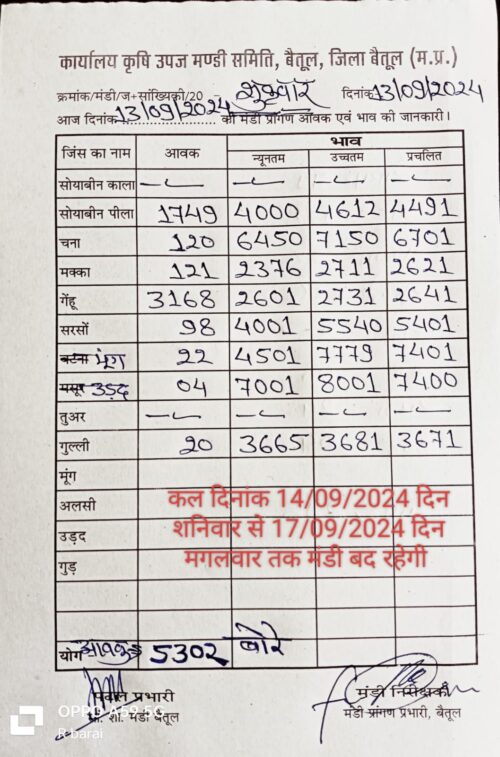 कार्यालय कृषि उपज मण्डी समिति, बैतूल, जिला बैतूल (म.प्र.)
क्रमांक/मंडी/ज+सांख्यिकी/20 - शुक्रवार दिनांक 13/09/2024
आज दिनांक 13/09/2024 की मंडी प्रांगण आवक एवं भाव की जानकारी।
जिंस का नाम आवक भाव
न्यूनतम उच्चतम प्रचलित
सोयाबीन काला — — — —
सोयाबीन पीला 1749 4000 4612 4491
चना 120 6450 7150 6701
मक्का 121 2376 2711 2621
गेंहू 3168 2601 2731 2641
सरसों 98 4001 5540 5401
बटना मूंग 22 4501 7779 7401
मसूर उड़द 04 7001 8001 7400
तुअर — — — —
गुल्ली 20 3665 3681 3671
मूंग
अलसी
उड़द
गुड़
कल दिनांक 14/09/2024 दिन
शनिवार से 17/09/2024 दिन
मगलवार तक मंडी बद रहेगी
योग आवक 5302 बोरे
प्रभारी मंडी निरीक्षक
मंडी बैतूल मंडी प्रांगण प्रभारी, बैतूल
OPPO A59 5G
R barai